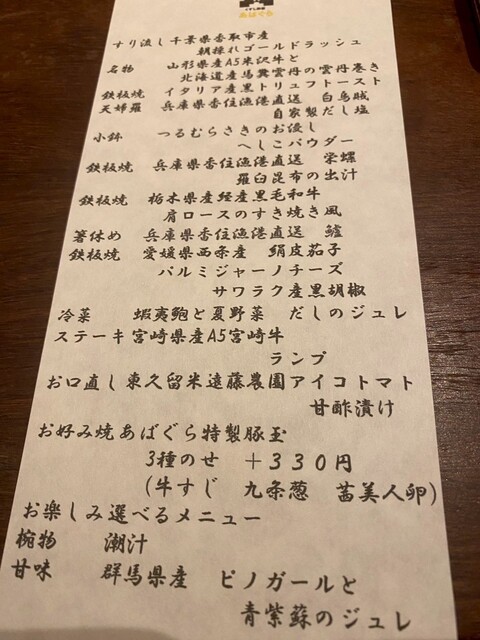 あばぐら
すり流し 千葉県香取市産
朝採れゴールドラッシュ
名物 山形県産A5米沢牛と
北海道産馬糞雲丹の雲丹巻き
鉄板焼 イタリア産黒トリュフトースト
天婦羅 兵庫県香住漁港直送 白烏賊
自家製だし塩
小鉢 つるむらさきのお浸し
へしこパウダー
鉄板焼 兵庫県香住漁港直送 栄螺
羅臼昆布の出汁
鉄板焼 栃木県産経産黒毛和牛
肩ロースのすき焼き風
箸休め 兵庫県香住漁港直送 鱧
鉄板焼 愛媛県西条産 絹皮茄子
パルミジャーノチーズ
サワラク産黒胡椒
冷菜 蝦夷鮑と夏野菜 だしのジュレ
ステーキ 宮崎県産A5宮崎牛
ランプ
お口直し 東久留米遠藤農園アイコトマト
甘酢漬け
お好み焼 あばぐら特製豚玉
3種のせ +330円
(牛すじ 九条葱 茜美人卵)
お楽しみ選べるメニュー
椀物 潮汁
甘味 群馬県産 ピノガールと
青紫蘇のジュレ